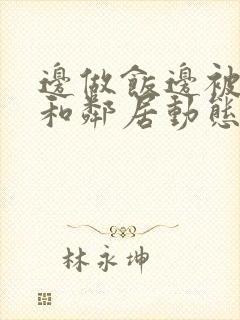 邊做飯邊被
和鄰居動態
林永坤